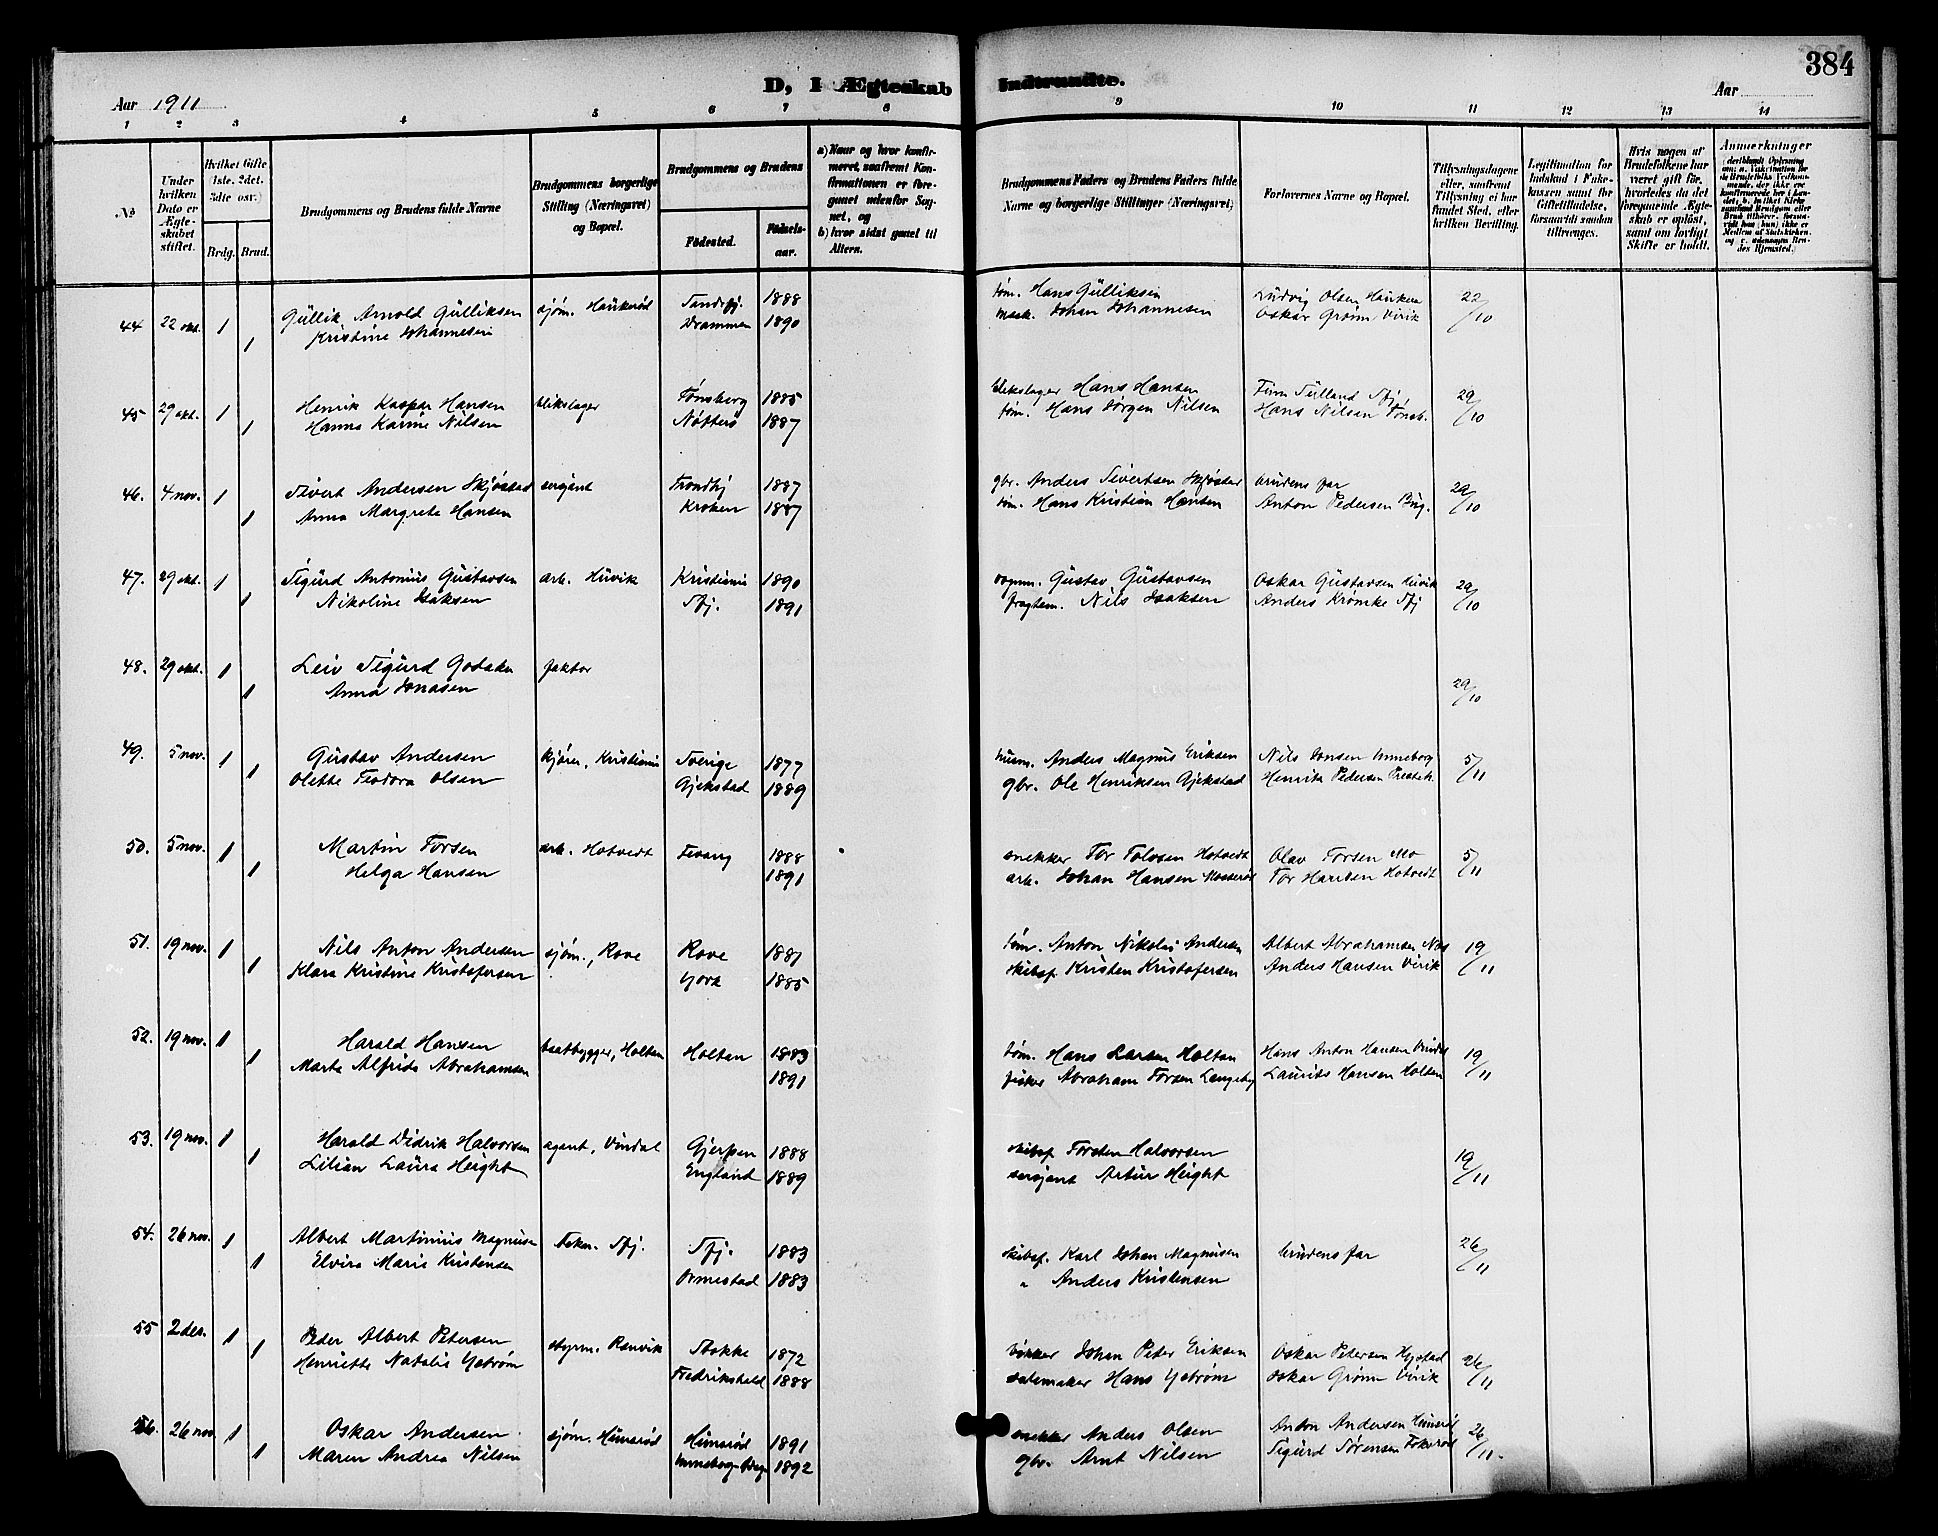 384
D, I Ægteskab Indtraadte.
Aar 1911
Aar
1 2 3 4 5 6 7 8 9 10 11 12 13 14
No
Under hvilken Dato er Ægteskabet stiftet.
Hvilket Gifte 1ste, 2det, 3die osv.
Brdg. Brud.
Brudgommens og Brudens fulde Navne
Brudgommens borgerlige Stilling (Næringsvei) og Bopæl.
Brudgommens og Brudens
Födested.
Födsels-aar.
a) Naar og hvor konfirmeret, saafremt Konfirmationen er foregaaet udenfor Sognet, og
b) hvor sidst gaaet til Altern.
Brudgommens Faders og Brudens Faders fulde Navne og borgerlige Stillinger (Næringsvei)
Forlovernes Navne og Bopæl.
Tillysningsdagene eller, saafremt Tillysning ei har fundet Sted, efter hvilken Bevilling.
Legitimation for Indskud i Enkekassen samt for Giftetilladelse, forsaavidt saadan tiltrænges.
Hvis nogen af Brudefolkene har været gift før, hvorledes da det foregaaende Ægteskab er opløst, samt om lovligt Skifte er holdt.
Anmerkninger
44 22 okt. 1 Gullik Arnold Gulliksen sjøm. Haukerød Sandefj. 1888 tøm. Hans Gulliksen Ludvig Olsen Hauken 22/10
1 Kristine Johannesen Drammen 1890 mask. Johan Johannesen Oskar Grønn Virik
45 29 okt. 1 Henrik Kaspar Hansen blikslager Tønsberg 1885 blikslager Hans Hansen Finn Tulland Sfj. 29/10
1 Hanna Karine Nilsen Nøtterø 1887 tøm. Hans Jørgen Nilsen Hans Nilsen Tønsb.
46. 4 nov. 1 Sivert Andersen Skjøstad sersjant Trondhj 1887 gbr. Anders Sivertsen Skjøstad brudens far 29/10
1 Anna Margrete Hansen Kroken 1887 tøm. Hans Kristian Hansen Anton Pedersen
47. 29 okt. 1 Sigurd Antonius Gustavsen arb. Huvik Kristiania 1890 Gustav Gustavsen Oskar Gustavsen Huvik 29/10
1 Nikoline Isaksen Sfj. 1891 Nils Isaksen Anders Krømke Sfj
48. 29 okt. 1 Leiv Sigurd faktor
1 Anna Jonasen 29/10
49. 5 nov. 1 Gustav Andersen kjører, Kristiania Sverige 1877 Anders Magnus Eriksen Nils Jonsen Unneberg 5/11
1 Olette Teodora Olsen Gjekstad 1889 gbr. Ole Henriksen Gjekstad Henrik Pedersen
50. 5 nov. 1 Martin Torsen arb. Hotvedt Tevang 1888 snekker Tor Tolvsen Hotvedt Olav Torsen Mo 5/11
1 Helga Hansen 1891 arb. Johan Hansen Mosserød Tor Hansen Hotvedt
51. 19 nov. 1 Nils Anton Andersen sjøm., Rove Rove 1887 tøm. Anton Nikolai Andersen Albert Abrahamsen Nes 19/11
1 Klara Kristine Kristofersen 1885 skibsf. Kristen Kristofersen Anders Hansen Virik
52. 19 nov. 1 Harald Hansen baatbygger, Holtan Holtan 1883 tøm. Hans Larsen Holtan Hans Anton Hansen Vindal 19/11
1 Marta Alfrida Abrahamsen 1891 fisker Abraham Torsen Langeby Laurits Hansen Holtan
53. 19 nov. 1 Harald Didrik Halvorsen agent, Vindal Gjerpen 1888 skibsf. Torsten Halvorsen
1 Lilian Laura Height England 1889 sersjant Artur Height 19/11
54. 26 nov. 1 Albert Martinius Magnusen Sfj. Sfj. 1883 skibsf. Karl Johan Magnusen brudens far 26/11
1 Elvira Marie Kristensen Ormestad 1883 " Anders Kristensen
55 2 des. 1 Peder Albert Petersen styrm. Ranvik Stokke 1872 Johan Peter Eriksen Oskar Petersen Hystad 26/11
1 Henriette Natalie Ystrøm Fredrikshald 1888 salemaker Hans Ystrøm Oskar Grønn Virik
56. 26 nov 1 Oskar Andersen sjøm. Himsrød Himsrød 1891 snekker Anders Olsen Anton Andersen Himsrød 26/11.
1 Maren Andrea Nilsen 1892 gbr. Arnt Nilsen Sigurd Sørensen Fokserød